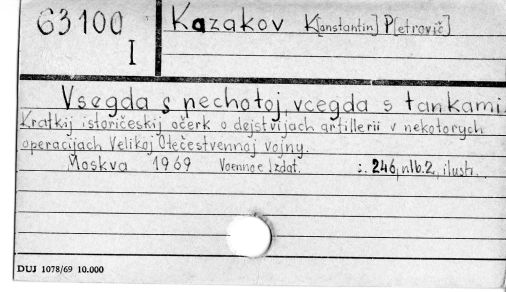 63100
I
Kazakov K[onstantin] P[etrovič]
Vsegda s nechotoj, vcegda s tankami.
Kratkij istoričeskij očerk o dejstvijach artillerii v nekotorych
operacijach Velikoj Otečestvennoj vojny.
Moskva 1969 Voennoe Izdat. :. 246, nlb. 2, ilustr.
DUJ 1078/69 10.000